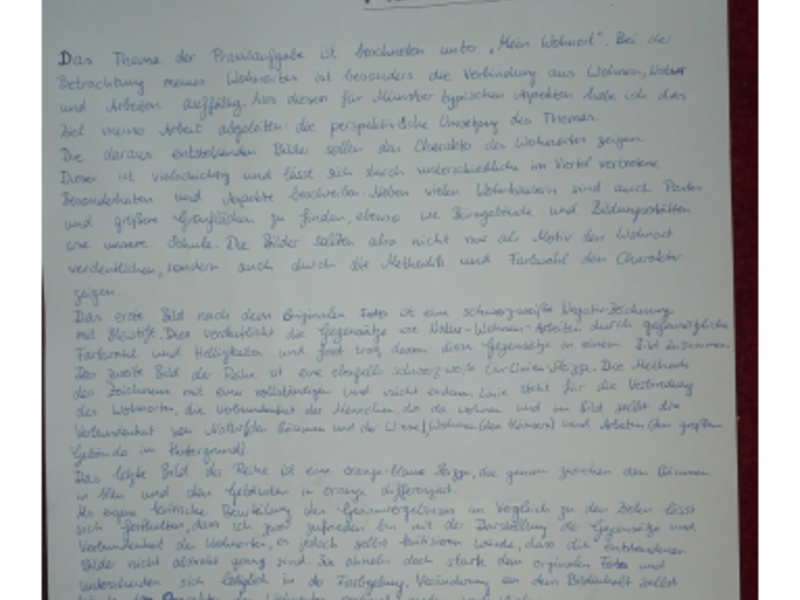 Das Thema der Praxisaufgabe ist beschrieben unter „Mein Wohnort". Bei der
Betrachtung meines Wohnortes ist besonders die Verbindung aus Wohnen, Natur
und Arbeiten auffällig. Aus diesen für Münster typischen Aspekten habe ich das
Ziel meiner Arbeit abgeleitet: die perspektivische Umsetzung des Themas.
Die daraus entstehenden Bilder sollen den Charakter des Wohnortes zeigen.
Dieser ist vielschichtig und lässt sich durch unterschiedliche im Viertel vertretene
Besonderheiten und Aspekte beschreiben. Neben vielen Wohnhäusern sind auch Parks
und größere Grünflächen zu finden, ebenso wie Bürogebäude und Bildungsstätten
wie unsere Schule. Die Bilder sollten also nicht nur als Motiv den Wohnort
verdeutlichen, sondern auch durch die Methodik und Farbwahl den Charakter
zeigen.
Das erste Bild nach dem originalen Foto ist eine schwarz-weiße Negativ-Zeichnung
mit Bleistift. Dies verdeutlicht die Gegensätze wie Natur-Wohnen-Arbeiten durch gegensätzliche
Farbwahl und Helligkeiten und fasst trotz dessen diese Gegensätze in einem Bild zusammen.
Das zweite Bild der Reihe ist eine ebenfalls schwarz-weiße Ein-Linien-Skizze. Die Methode
des Zeichnens mit einer vollständigen und nicht endenen Linie steht für die Verbindung
des Wohnortes, die Verbundenheit der Menschen, die da wohnen und im Bild selbst die
Verbundenheit von Natur (den Bäumen und der Wiese), Wohnen (den Häusern) und Arbeiten (den großen
Gebäude im Hintergrund).
Das letzte Bild der Reihe ist eine orange-blaue Skizze, die genau zwischen den Bäumen
in blau und den Gebäuden in orange differenziert.
Als eigene kritische Beurteilung des Gesamtergebnisses im Vergleich zu den Zielen lässt
sich festhalten, dass ich zwar zufrieden bin mit der Darstellung der Gegensätze und
Verbundenheit des Wohnortes, es jedoch selbst kritisieren würde, dass die entstandenen
Bilder nicht abstrakt genug sind. Sie ähneln doch stark dem orginalen Foto und
unterscheiden sich lediglich in der Farbgebung. Veränderung an dem Bildinhalt selbst